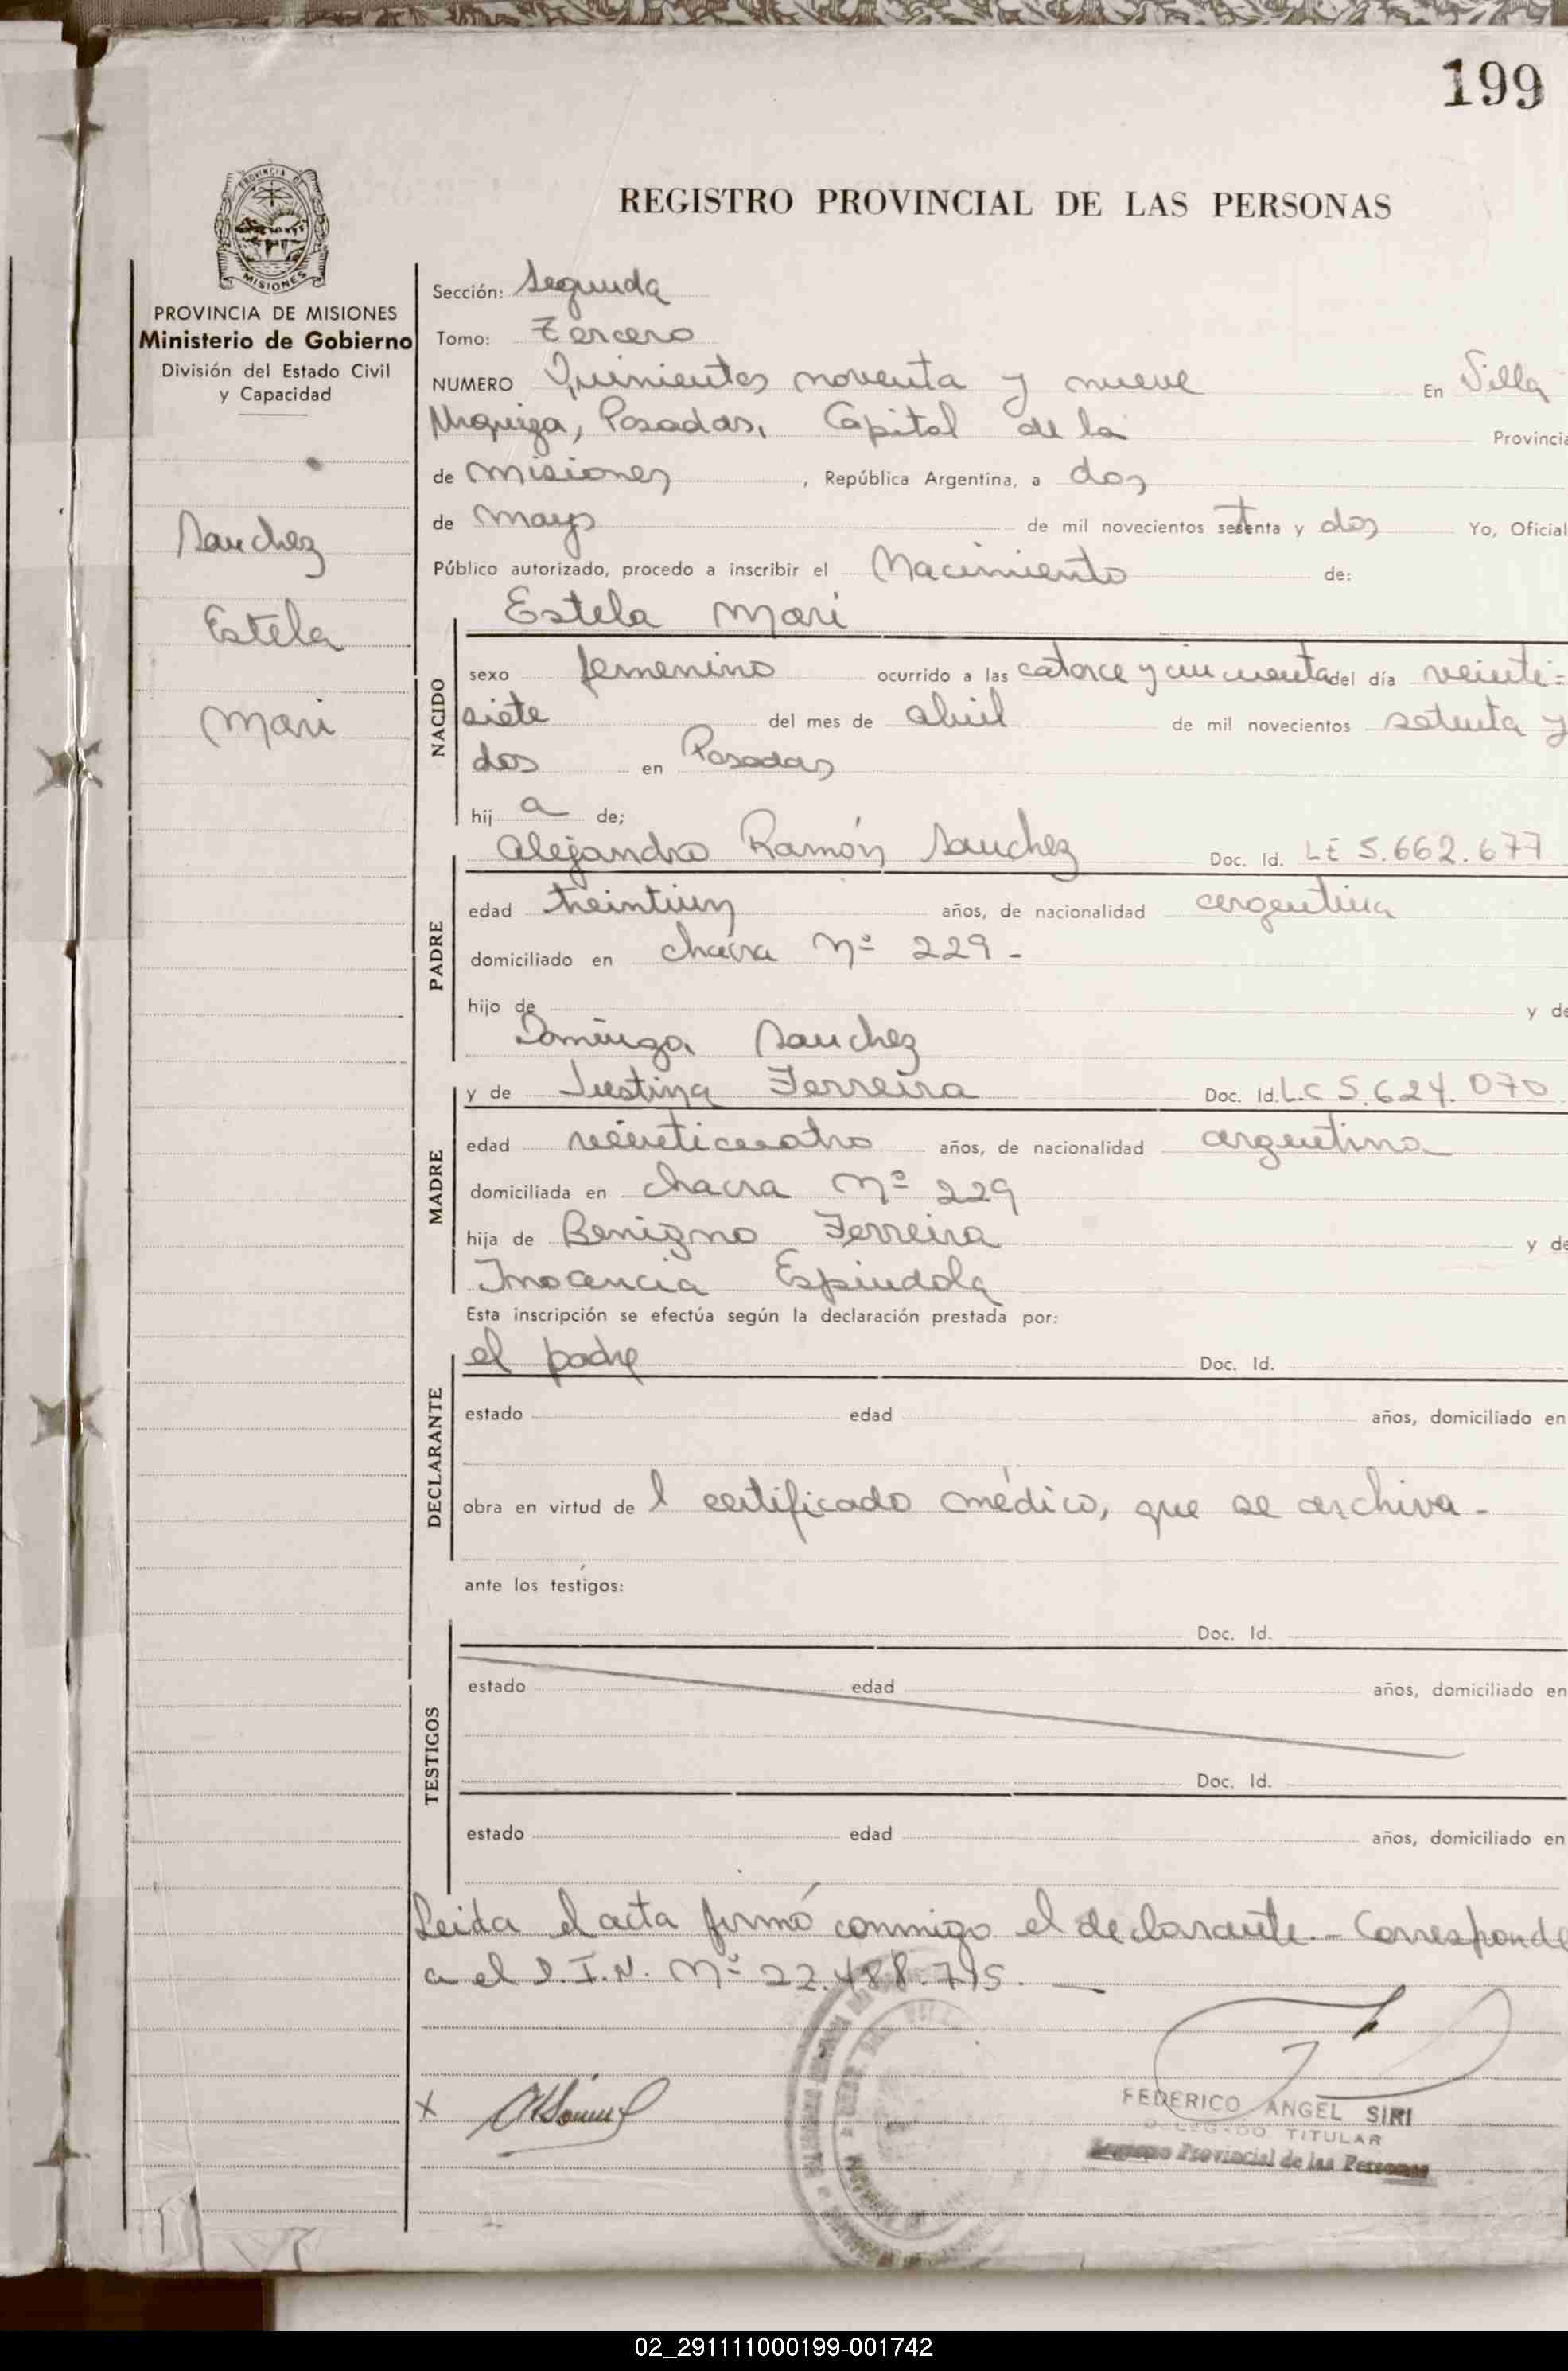 199
PROVINCIA DE
MISIONES
PROVINCIA DE MISIONES
Ministerio de Gobierno
División del Estado Civil
y Capacidad
Sanchez
Estela
Mari
REGISTRO PROVINCIAL DE LAS PERSONAS
Sección: Segunda
Tomo: Tercero
NUMERO Quinientos noventa y nueve En Villa
Urquiza, Posadas, Capital de la Provincia
de Misiones, República Argentina, a dos
de mayo de mil novecientos setenta y dos Yo, Oficial
Público autorizado, procedo a inscribir el Nacimiento de:
Estela Mari
NACIDO
sexo femenino ocurrido a las catorce y cincuenta del día veinti=
siete del mes de abril de mil novecientos setenta y
dos en Posadas
hij a de;
PADRE
Alejandro Ramón Sanchez Doc. Id. LE 5.662.677
edad treintiun años, de nacionalidad argentina
domiciliado en chacra Nº 229 -
hijo de y de
Dominga Sanchez
MADRE
y de Justina Ferreira Doc. Id. L.C 5.624.070
edad veinticuatro años, de nacionalidad argentina
domiciliada en chacra Nº 229
hija de Benigno Ferreira y de
Inocencia Espindola
Esta inscripción se efectúa según la declaración prestada por:
DECLARANTE
el padre Doc. Id.
estado edad años, domiciliado en
obra en virtud de l certificado médico, que se archiva -
ante los testigos:
TESTIGOS
Doc. Id.
estado edad años, domiciliado en
Doc. Id.
estado edad años, domiciliado en
Leida el acta firmó conmigo el declarante. - Corresponde
a el D.I.N. Nº 22.488.715. —
X
FEDERICO ANGEL SIRI
DELEGADO TITULAR
Registro Provincial de las Personas
02_291111000199-001742